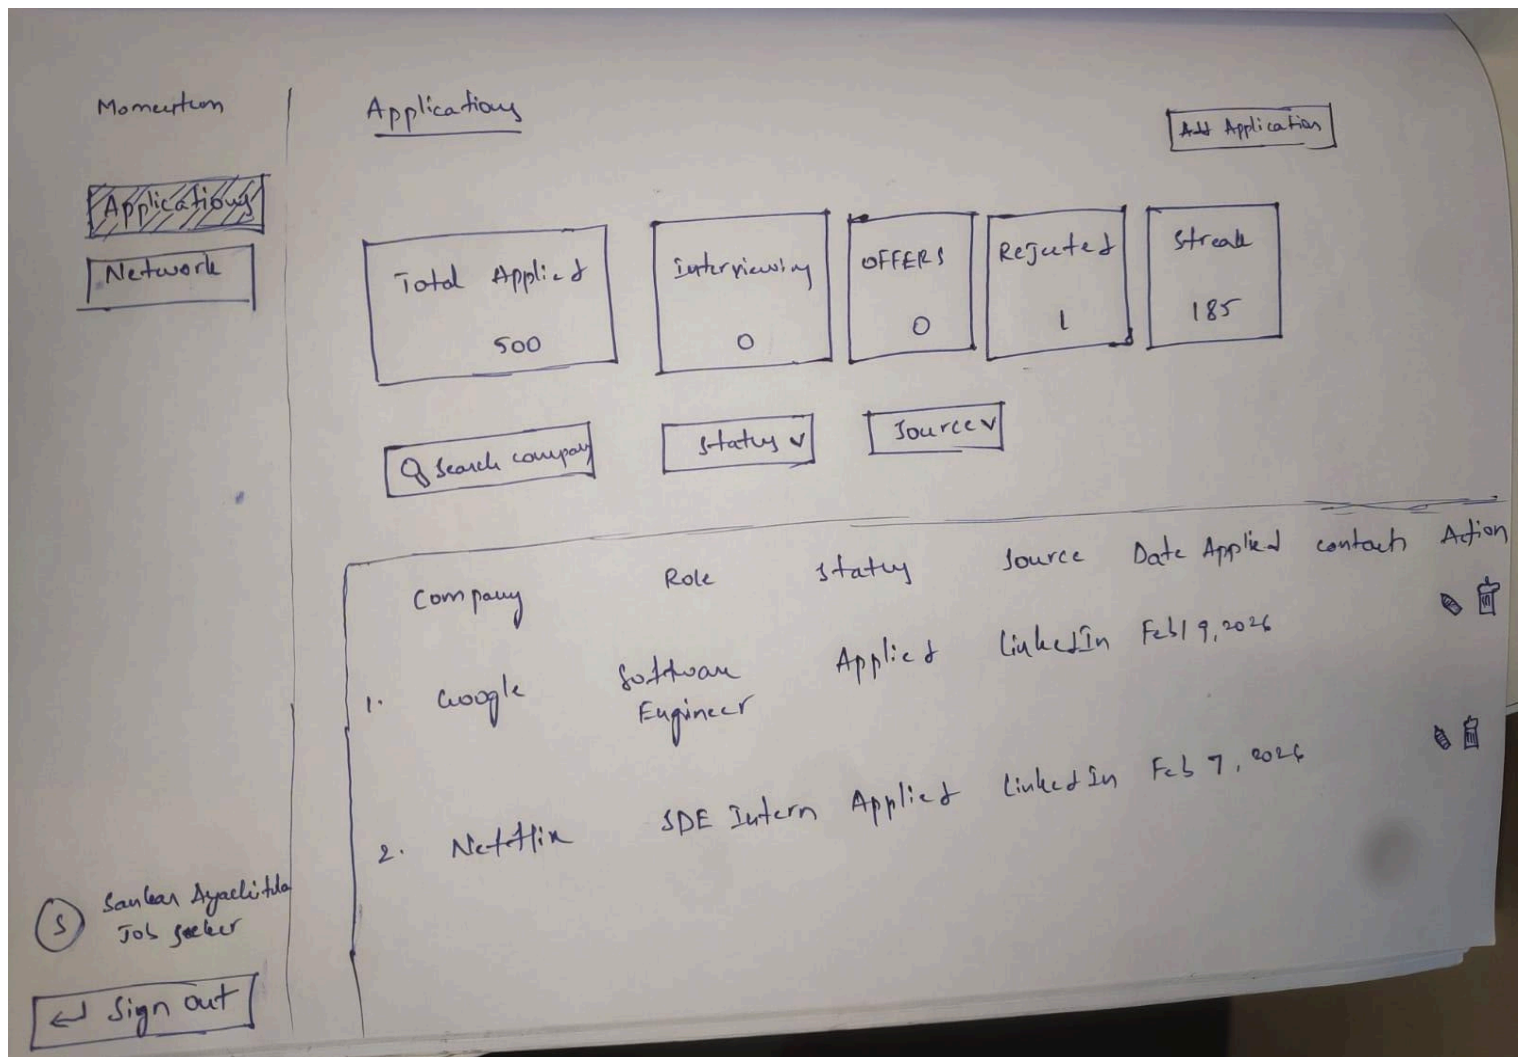 Momentum
Applications
Network
Applications
Add Application
Total Applied
500
Interviewing
0
OFFERS
0
Rejected
1
Streak
185
Search company
Status
Source
Company Role Status Source Date Applied contacts Action
1. Google Software Engineer Applied LinkedIn Feb 19, 2026
2. Netflix SDE Intern Applied LinkedIn Feb 7, 2026
S
Job Seeker
Sign out